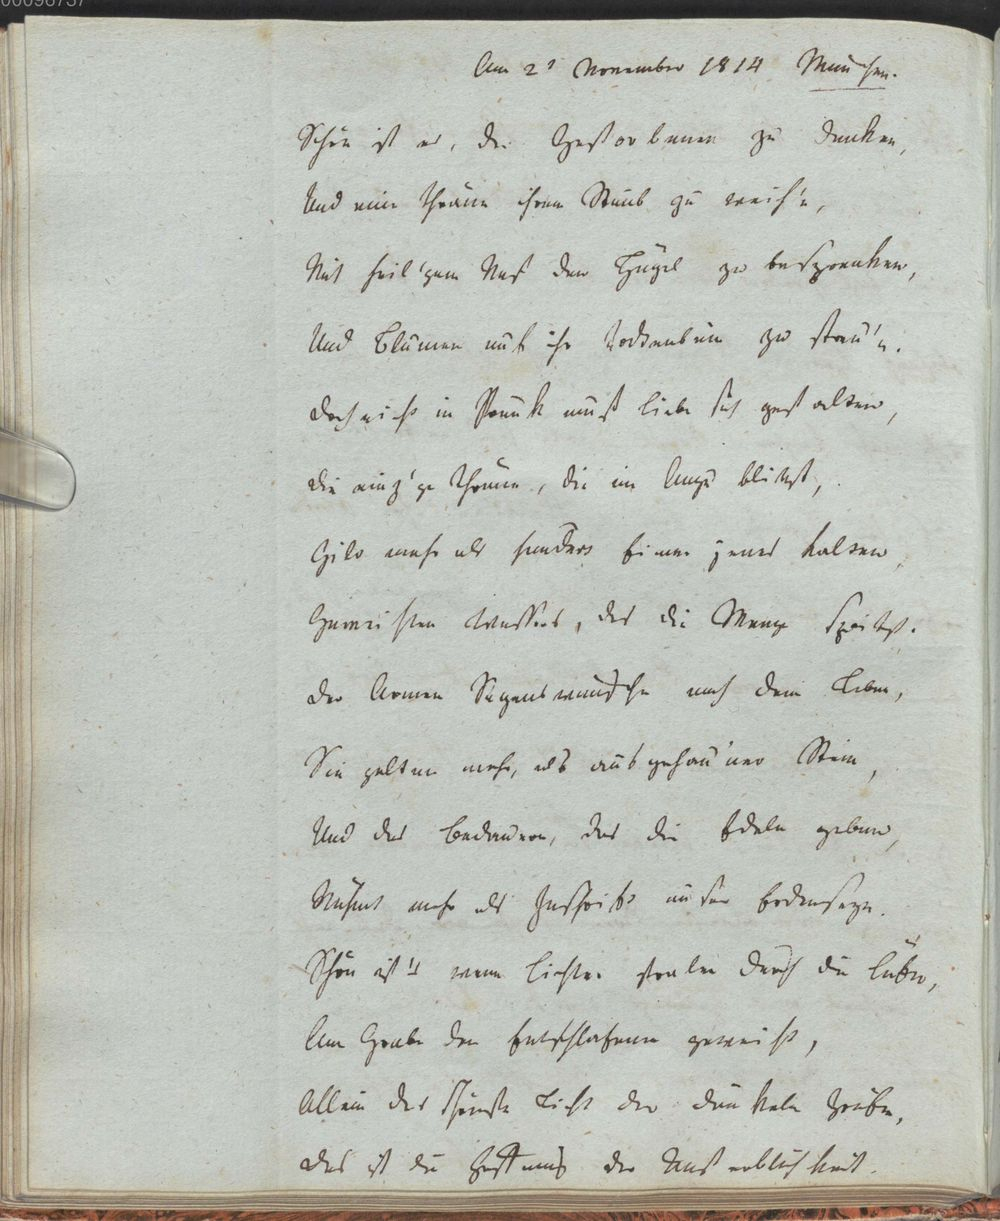 00096737
Am 2t November 1814 München.
Schön ist es, der Gestorbenen zu denken,
Und eine Thräne ihrem Staub zu weih'n,
Mit heil'gem Naß den Hügel zu besprenken,
Und Blumen auf ihr Todtenbein zu streu'n.
Doch nicht in Prunk muß Liebe sich gestalten,
Die einz'ge Thräne, die im Auge blitzt,
Gilt mehr als hundert Eimer jenes kalten
Geweihten Wassers, das die Menge spritzt.
Der Armen Segenswünsche nach dem Leben,
Sie gelten mehr, als ausgehau'ner Stein,
Und das Bedauern, das die Edeln geben,
Rühmt mehr als Inschrift unser
Schön ist's wenn Lichter stralen durch die Lüfte,
Am Grabe den Entschlafenen geweiht,
Allein das schönste Licht der dunkeln Grüfte,
Das ist die Hoffnung der Unsterblichkeit.